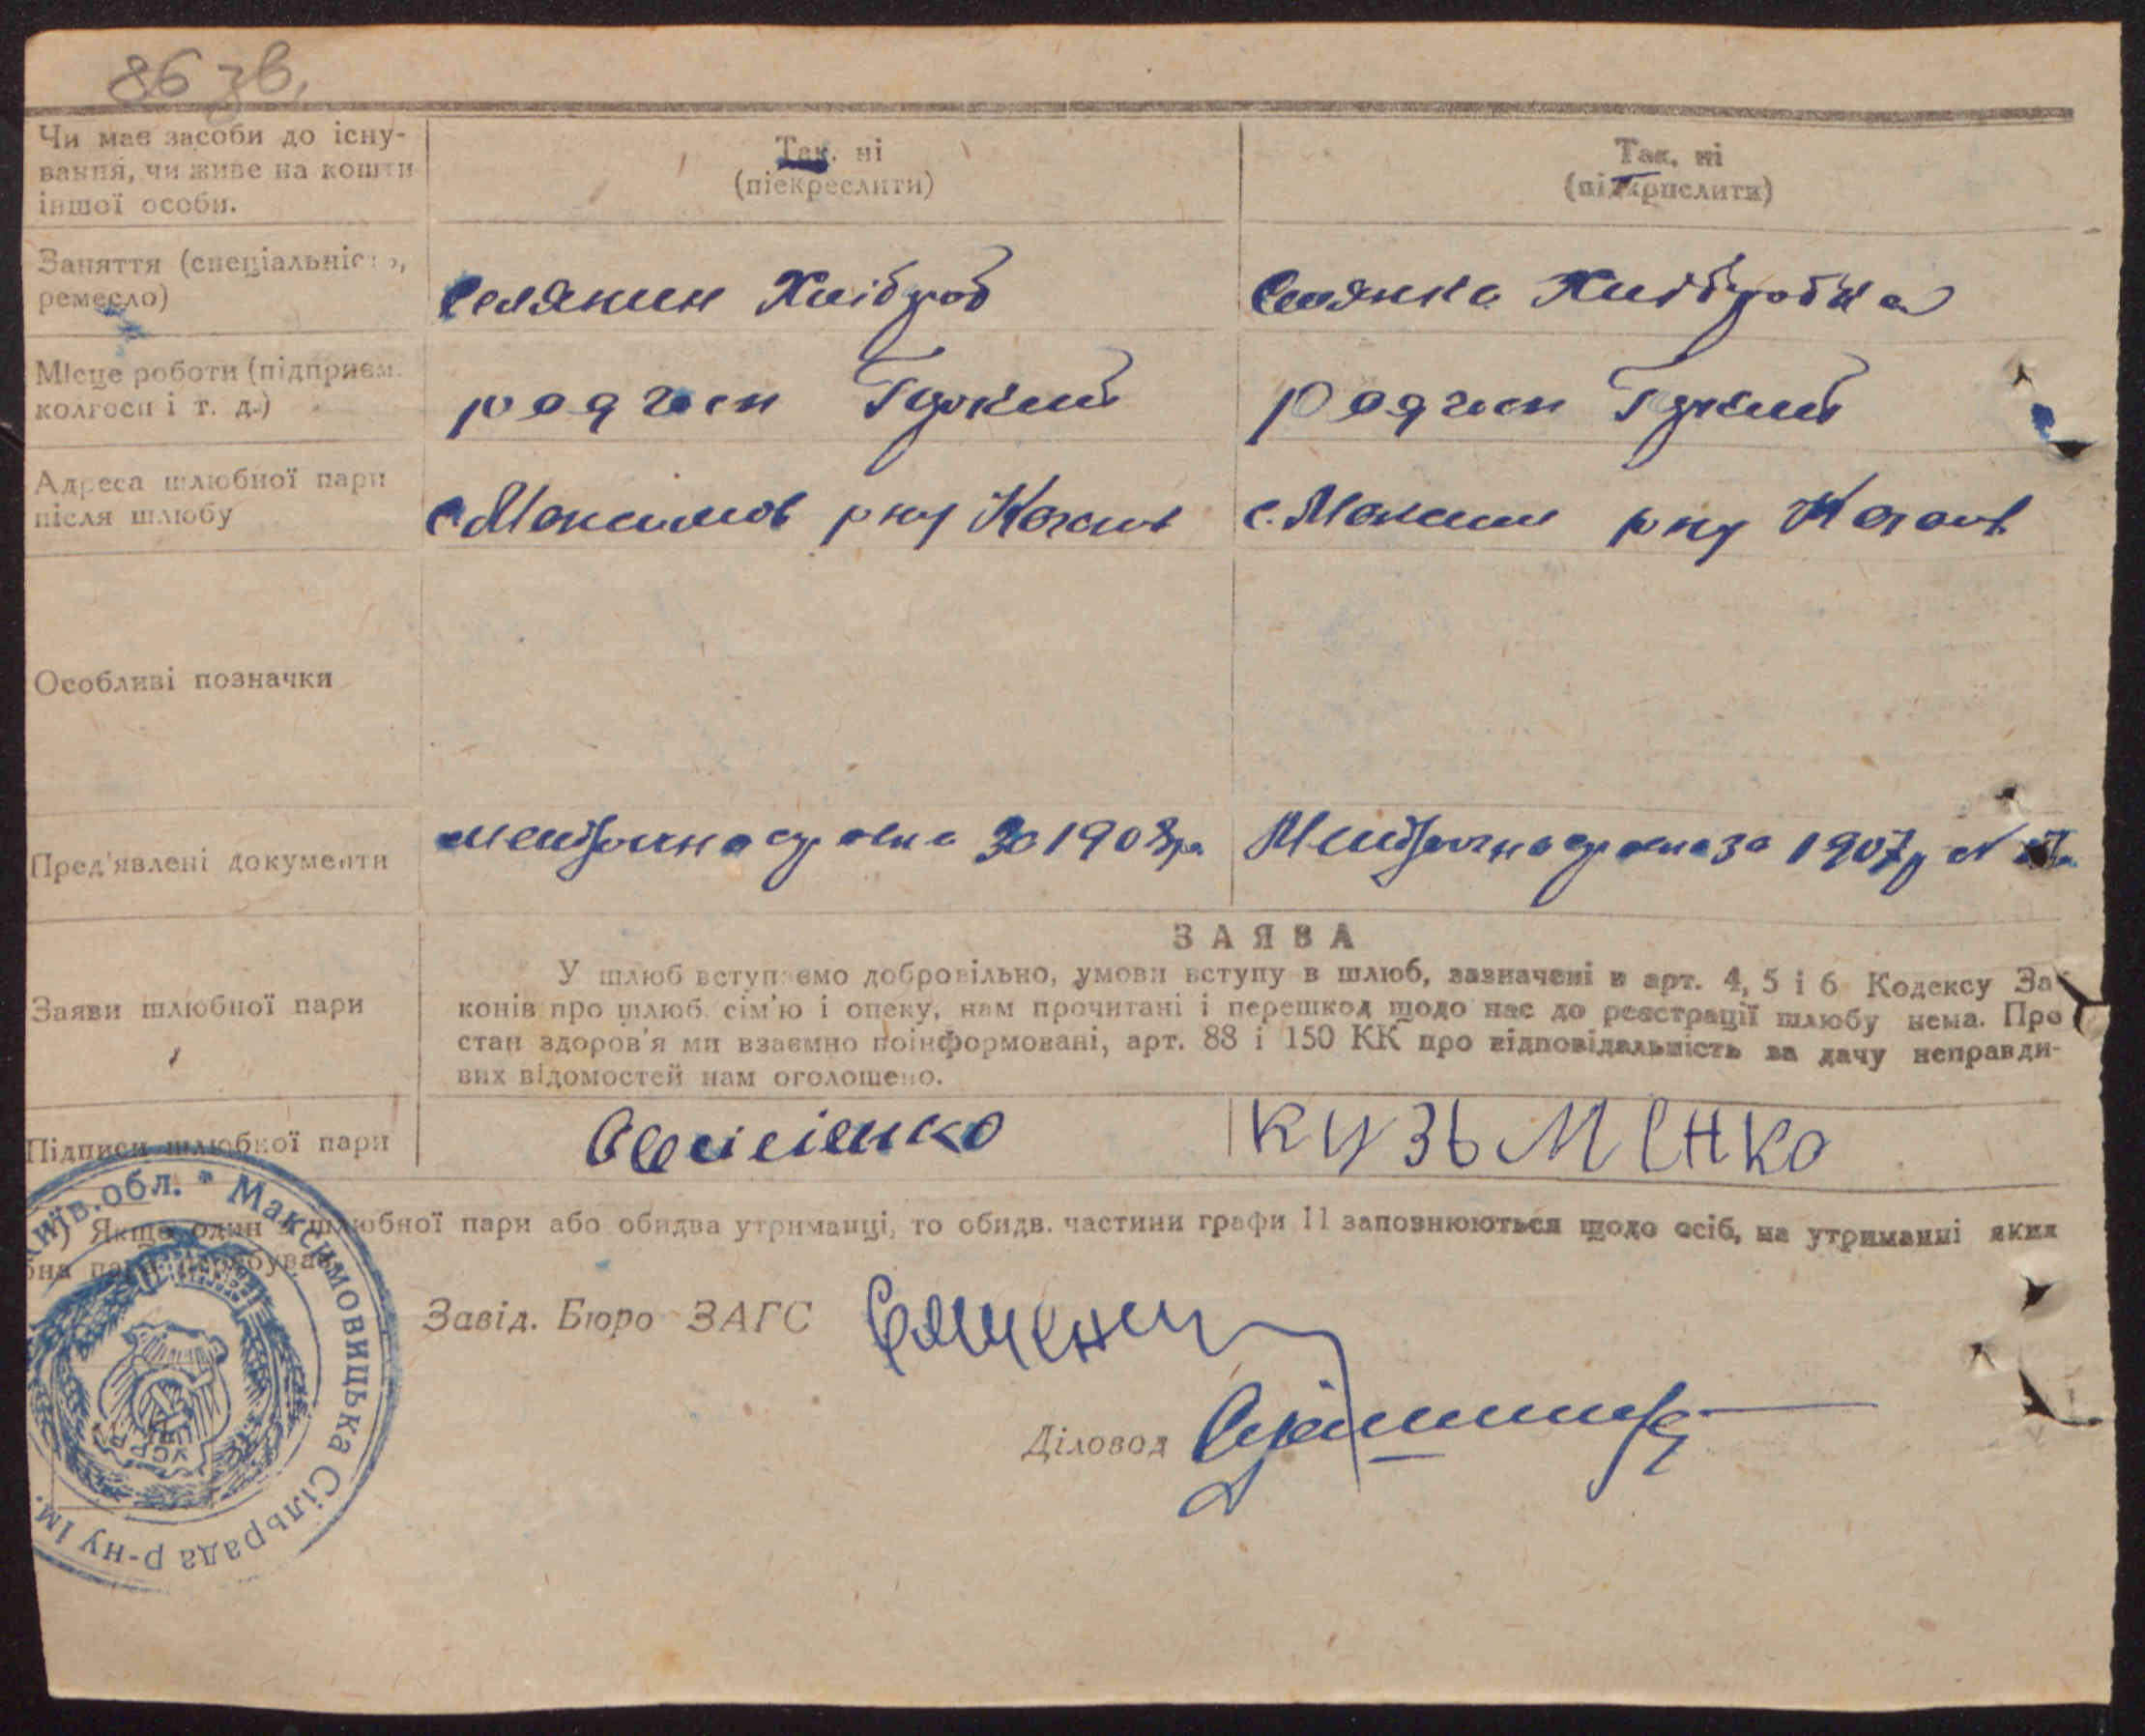 86 зв.
Чи має засоби до існу-
вання, чи живе на кошти
іншої особи.
Так, ні
(піекреслити)
Так, ні
(підкрпслити)
Заняття (спеціальність,
ремесло)
Селянин Хлібороб
Селянка Хлібробка
Місце роботи (підприєм.
колгосп і т. д.)
радгосп
радгосп
Адреса шлюбної пари
після шлюбу
с. рну
с. рну
Особливі позначки
Пред'явлені документи
за 1908 р.
за 1907 р
ЗАЯВА
Заяви шлюбної пари
У шлюб вступаємо добровільно, умови вступу в шлюб, зазначені в арт. 4, 5 і 6 Кодексу За-
конів про шлюб, сім'ю і опеку, нам прочитані і перешкод щодо нас до реєстрації шлюбу нема. Про
стан здоров'я ми взаємно поінформовані, арт. 88 і 150 КК про відповідальність за дачу неправди-
вих відомостей нам оголошено.
Підписи шлюбної пари
КУЗЬМЕНКО
) Якщо один з шлюбної пари або обидва утриманці, то обидв. частини графи 11 заповнюються щодо осіб, на утриманні яких
Завід. Бюро ЗАГС
Діловод
Київ. обл. * Максимовицька Сільрада р-ну ім.
УСРР